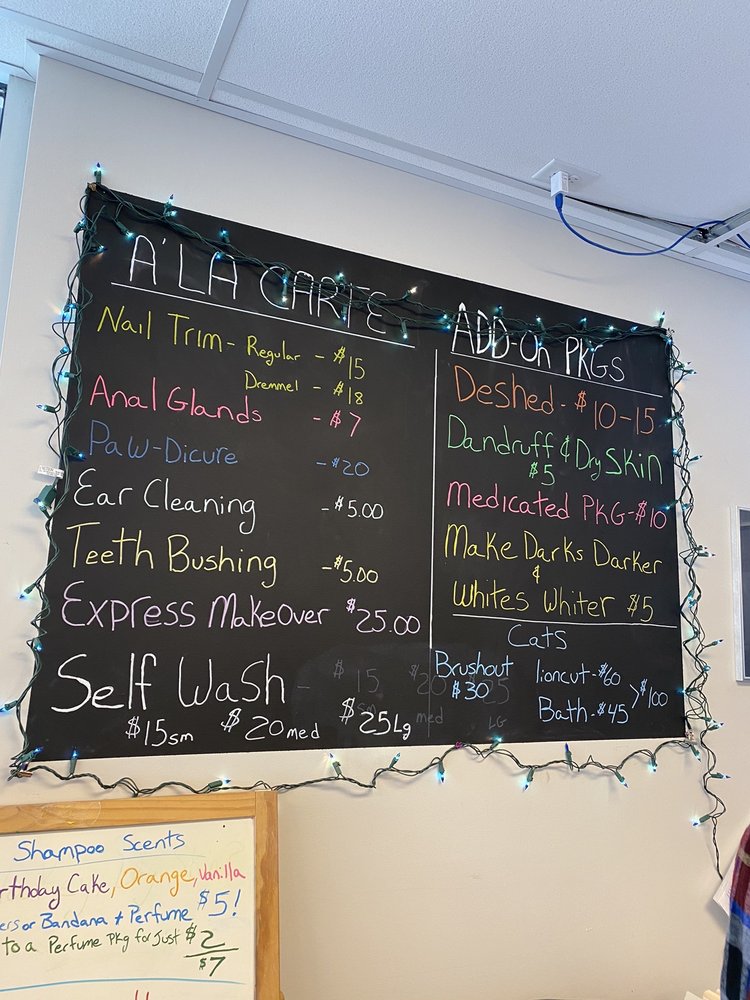 A'LA CARTE
Nail Trim - Regular - $15
Dremmel - $18
Anal Glands - $7
Paw-Dicure - $20
Ear Cleaning - $5.00
Teeth Bushing - $5.00
Express MakeOver $25.00
Self Wash -
$15 sm $20 med $25 Lg
ADD-On PKGS
Deshed - $10-15
Dandruff & Dry Skin
$5
Medicated PKG - $10
Make Darks Darker
&
Whites Whiter $5
Cats
Brushout
$30
lioncut - $60
Bath - $45
> $100
Shampoo Scents
Cake, Orange, Vanilla
or Bandana + Perfume $5!
to a Perfume Pkg for Just $2
$7